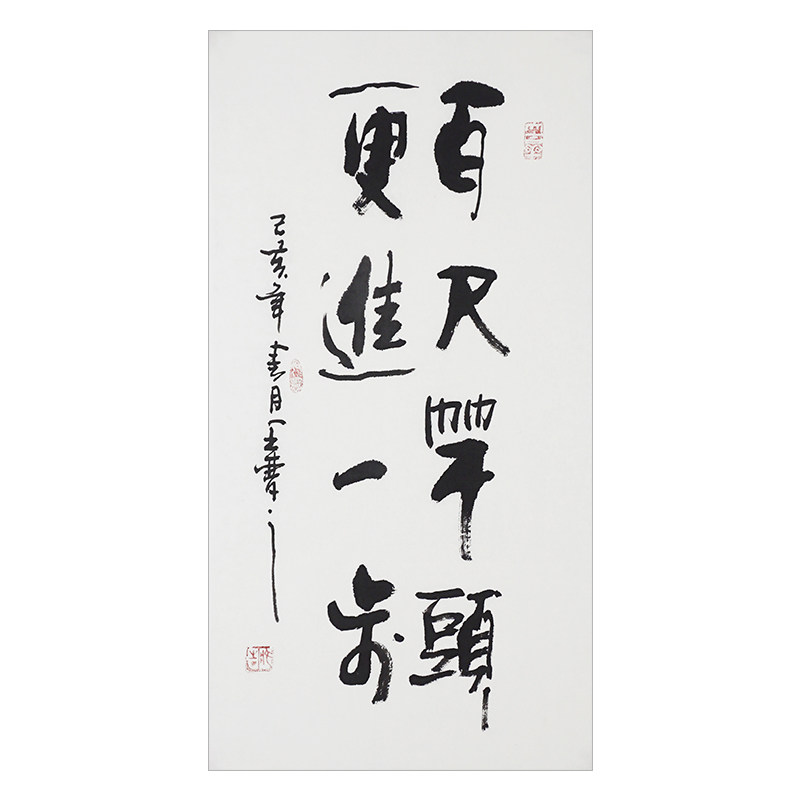 百尺竿頭
更進一步
己亥年春月王